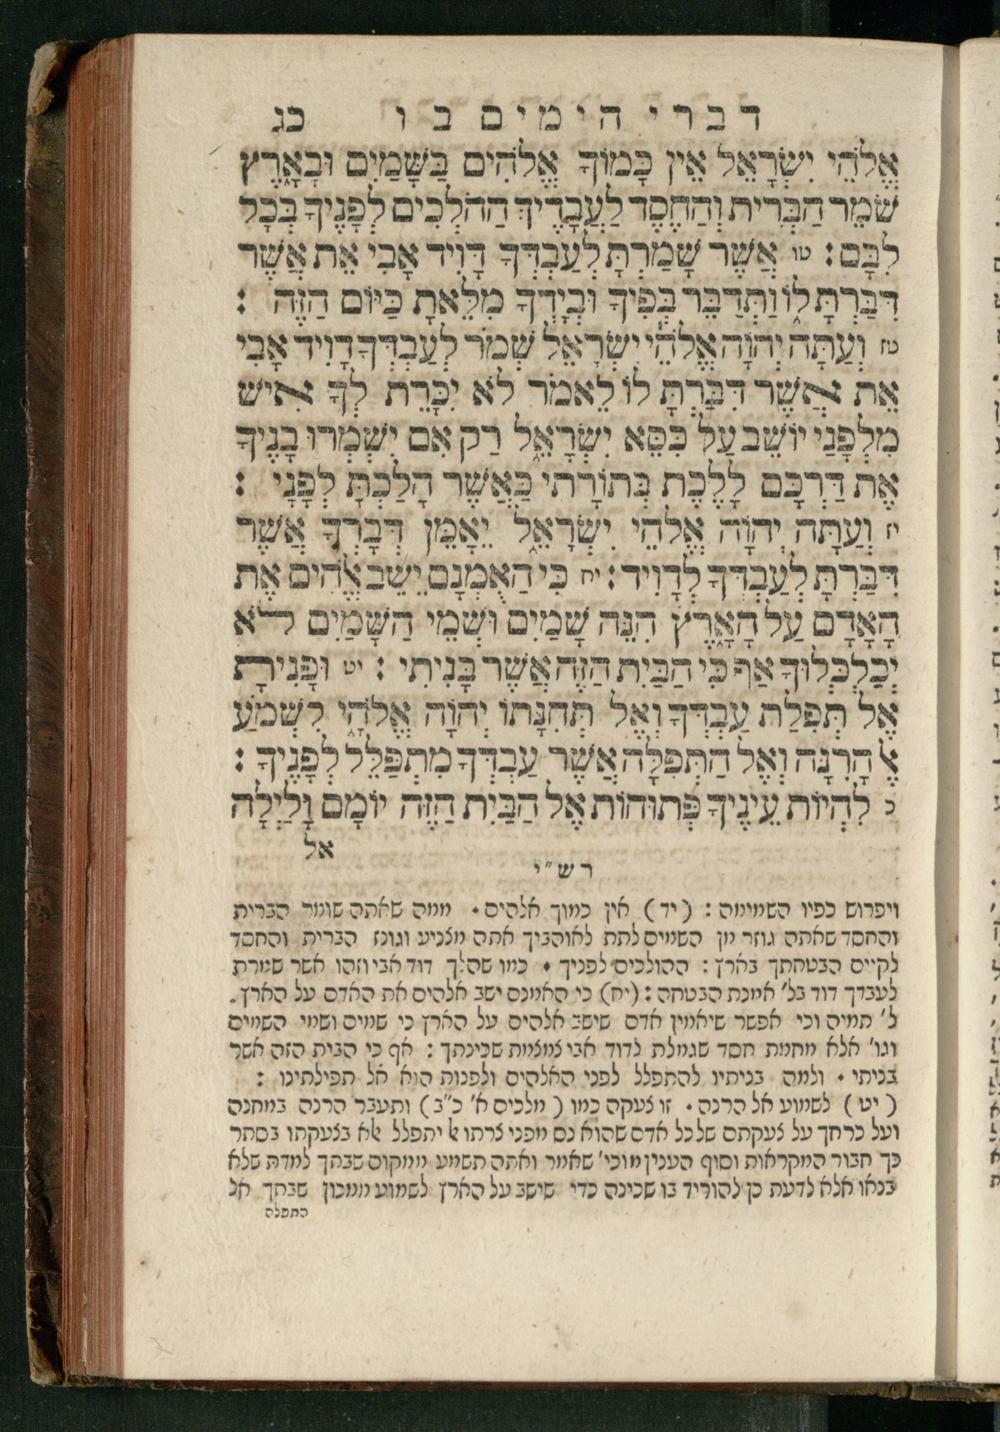 דברי הימים ב ו כג
אֱלֹהֵי יִשְׂרָאֵל אֵין כָּמוֹךָ אֱלֹהִים בַּשָּׁמַיִם וּבָאָרֶץ
שֹׁמֵר הַבְּרִית וְהַחֶסֶד לַעֲבָדֶיךָ הַהֹלְכִים לְפָנֶיךָ בְּכָל
לִבָּם : טו אֲשֶׁר שָׁמַרְתָּ לְעַבְדְּךָ דָּוִיד אָבִי אֵת אֲשֶׁר
דִּבַּרְתָּ לוֹ וַתְּדַבֵּר בְּפִיךָ וּבְיָדְךָ מִלֵּאתָ כַּיּוֹם הַזֶּה :
טז וְעַתָּה יְהוָֹה אֱלֹהֵי יִשְׂרָאֵל שְׁמֹר לְעַבְדְּךָ דָוִיד אָבִי
אֵת אֲשֶׁר דִּבַּרְתָּ לּוֹ לֵאמֹר לֹא יִכָּרֵת לְךָ אִישׁ
מִלְּפָנַי יוֹשֵׁב עַל כִּסֵּא יִשְׂרָאֵל רַק אִם יִשְׁמְרוּ בָנֶיךָ
אֶת דַּרְכָּם לָלֶכֶת בְּתוֹרָתִי כַּאֲשֶׁר הָלַכְתָּ לְפָנָי :
יז וְעַתָּה יְהוָֹה אֱלֹהֵי יִשְׂרָאֵל יֵאָמֵן דְּבָרְךָ אֲשֶׁר
דִּבַּרְתָּ לְעַבְדְּךָ לְדָוִיד : יח כִּי הַאֻמְנָם יֵשֵׁב אֱלֹהִים אֶת
הָאָדָם עַל הָאָרֶץ הִנֵּה שָׁמַיִם וּשְׁמֵי הַשָּׁמַיִם לֹא
יְכַלְכְּלוּךָ אַף כִּי הַבַּיִת הַזֶּה אֲשֶׁר בָּנִיתִי : יט וּפָנִיתָ
אֶל תְּפִלַּת עַבְדְּךָ וְאֶל תְּחִנָּתוֹ יְהוָֹה אֱלֹהָי לִשְׁמֹעַ
אֶל הָרִנָּה וְאֶל הַתְּפִלָּה אֲשֶׁר עַבְדְּךָ מִתְפַּלֵּל לְפָנֶיךָ :
כ לִהְיוֹת עֵינֶיךָ פְתוּחוֹת אֶל הַבַּיִת הַזֶּה יוֹמָם וָלַיְלָה
אל
רש״י
ויפרוש כפיו השמימה : (יד) אין כמוך אלהים • ממה שאתה שומר הברית
והחסד שאתה גוזר מן השמים לתת לאוהביך אתה מצניע וגונז הברית והחסד
לקיים הבטחתך בארץ : ההולכים לפניך • כמו שהלך דוד אבי וזהו אשר שמרת
לעבדך דוד בל׳ אמנת הבטחה : (יח) כי האמנם ישב אלהים את האדם על הארץ .
ל׳ תמיה וכי אפשר שיאמין אדם שישב אלהים על הארץ כי שמים ושמי השמים
וגו׳ אלא מחמת חסד שגמלת לדוד אבי צמצמת שכינתך : אף כי הבית הזה אשר
בניתי • ולמה בניתיו להתפלל לפני האלהים ולפנות הוא אל תפילתינו :
(יט) לשמוע אל הרנה • זו צעקה כמו (מלכים א׳ כ״ב) ותעבר הרנה במחנה
ועל כרחך על צעקתם של כל אדם שהוא נס מפני צרתו או יתפלל שלא בצעקתו בסתר
כך חבור המקראות וסוף הענין מוכי׳ שאמר ואתה תשמע ממקום שבתך למדת שלא
בנאו אלא לדעת כן להוריד בו שכינה כדי שישב על הארץ לשמוע ממכון שבתך אל
התפלה